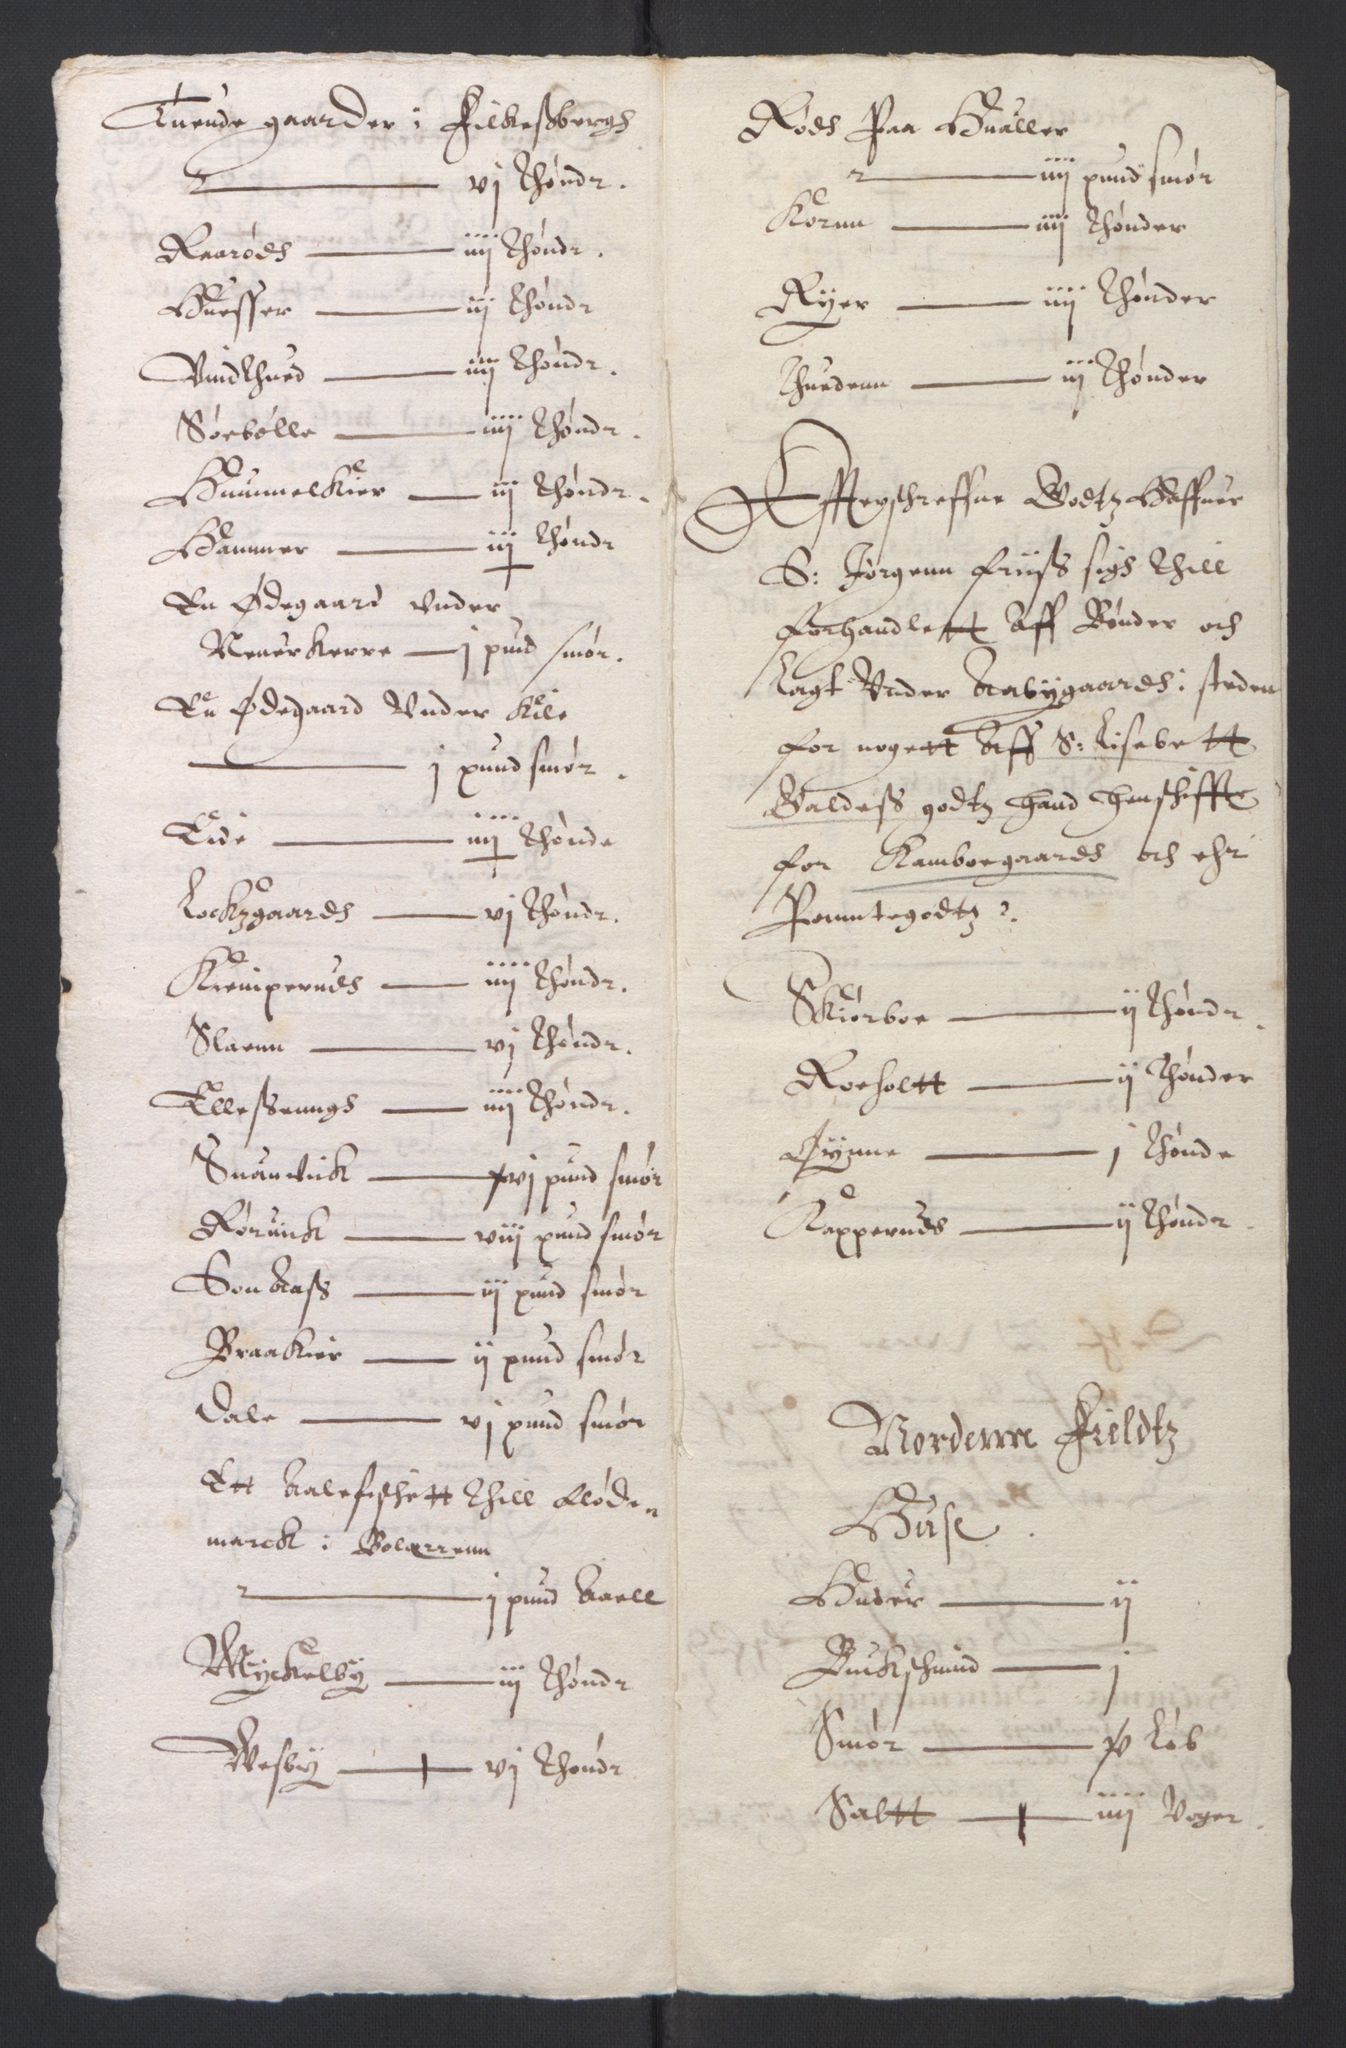 Tuende gaarder i Filkeßbergh
— vj thøndr.
Raarødh — iiij thøndr.
Huesser — iij thøndr
Vindthued — iiij thøndr.
Sørbølle — iiij thøndr.
Hummelkier — iij thøndr.
Hammer — iij thøndr
En Ødegaard vnder
Neuerkerre — j pund smør.
En Ødegaard Vnder Kile
— j pund smør.
Eide — iiij thønde
Lockzgaardh — vj thøndr.
Kiemperudh — iiij thøndr.
Slaenn — vj thøndr.
Elleßenngh — iiij thøndr.
Snanuick — vj pund smør
Røruick — viij pund smør
Son Aaß — iij pund smør
Braakier — ij pund smør
Dale — vj pund smør
Ett Aalefischett thill Fløde
marck i Bolærenn
— j pund Aaell
Myckelby — iij thøndr
Wesby — vj thøndr
Rødh Paa Hualler
— iiij pund smør
Kornn — iiij thønder
Ryer — iiij thønder
Thuedenn — iij thønder
Effterschreffne Godtz Haffuer
S: Jørgenn Friiß sigh thill
forhandlett Aff Bønder och
lagt Vnder Aabygaardh i steden
for nogett Aff S: Lisebett
Baldeß godtz hand henschiffte
for Kamboegaardh och ehr
Panntegodtz.
Skiørboe — ij thøndr.
Roeholtt — ij thønder
Qvinne — j thønde
Kapperudh — ij thøndr.
Nordenn Fieldtz
Huse.
Huder — ij
Buckschind — j
Smør — v Løb
Saltt — iiij Voger.